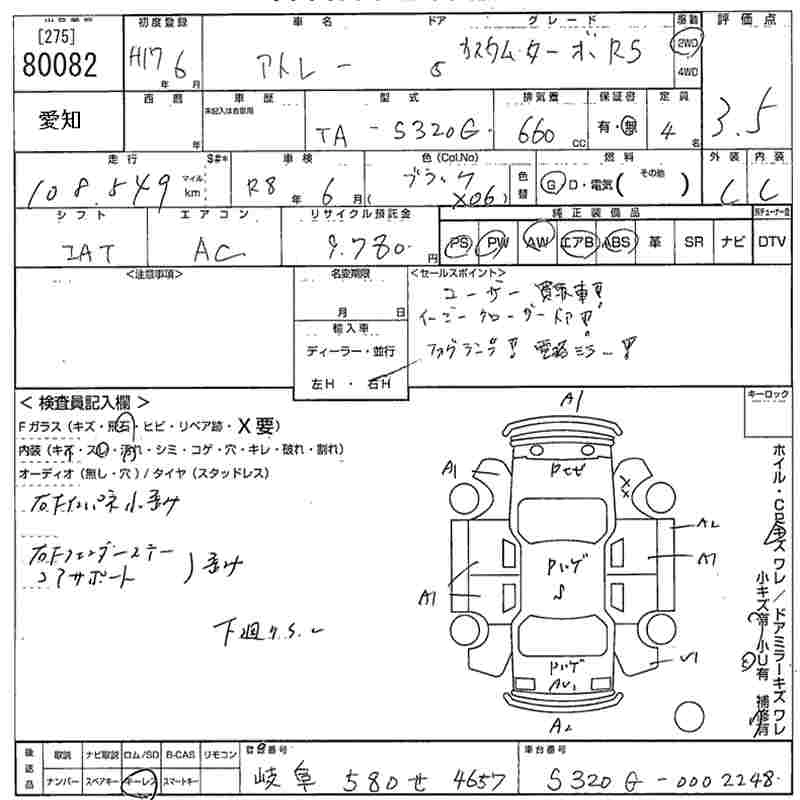 [275]
80082
愛知
初度登録
H17 年 6 月
車名
アトレー
ドア
5
グレード
カスタムターボRS
駆動
2WD
4WD
評価点
3.5
西暦
年
車歴
未記入は自家用
型式
TA - S320G
排気量
660 CC
保証書
有・無
定員
4 名
走行
108,549
マイル
km
S#*
車検
R8 年 6 月
色 (Col,No)
ブラック
( X06 )
色替
燃料
G D・電気 ( その他 )
外装
C
内装
C
シフト
IAT
エアコン
AC
リサイクル預託金
9.780 円
純正装備品
PS PW AW エアB ABS 革 SR ナビ DTV
<注意事項>
名変期限
月 日
輸入車
ディーラー・並行
左H ・ 右H
<セールスポイント>
ユーザー買取車!!
イージークローザードア!!
フォグランプ!! 電格ミラー!!
< 検査員記入欄 >
Fガラス (キズ・飛石・ヒビ・リペア跡・X要)
内装 (キズ・スレ・汚れ・シミ・コゲ・穴・キレ・破れ・割れ)
オーディオ (無し・穴) / タイヤ (スタッドレス)
小歪み
右Fフェンダーステー
コアサポート ) 歪み
下廻りS.
キーロック
A1
A1
Pヒゼ
X
X
A2
A7
Pハゲ
S
A1
Pハゲ
AU1
U1
A2
後送品
取説 ナビ取説 ロム/SD B-CAS リモコン
ナンバー スペアキー キーレス スマートキー
登録番号
岐阜 580 せ 4657
車台番号
S320G - 0002248